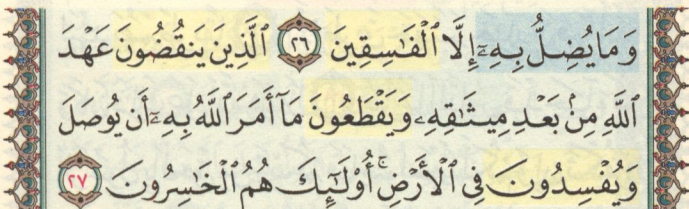 وَمَا يُضِلُّ بِهِۦٓ إِلَّا ٱلْفَـٰسِقِينَ ٢٦ ٱلَّذِينَ يَنقُضُونَ عَهْدَ
ٱللَّهِ مِنۢ بَعْدِ مِيثَـٰقِهِۦ وَيَقْطَعُونَ مَآ أَمَرَ ٱللَّهُ بِهِۦٓ أَن يُوصَلَ
وَيُفْسِدُونَ فِى ٱلْأَرْضِ ۚ أُو۟لَـٰٓئِكَ هُمُ ٱلْخَـٰسِرُونَ ٢٧